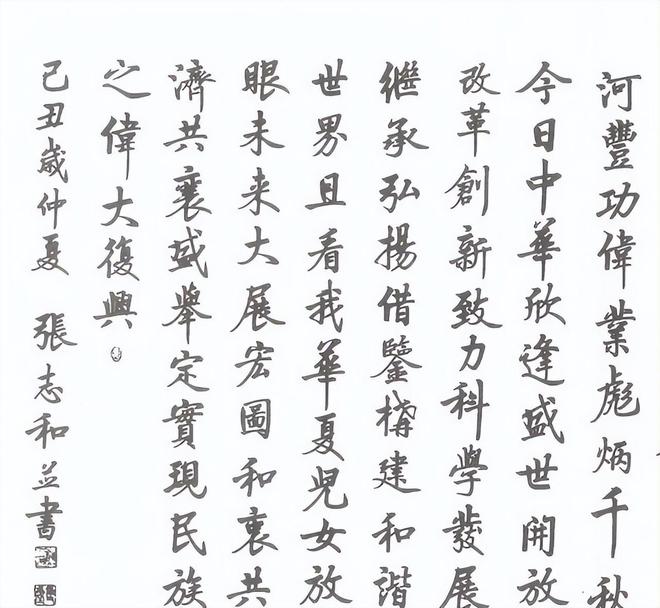 河豐功偉業彪炳千秋
今日中華欣逢盛世開放
改革創新致力科學發展
繼承弘揚借鑒構建和諧
世界且看我華夏兒女放
眼未来大展宏圖和衷共
濟共襄盛舉定實現民族
之偉大復興
己丑歲仲夏 張志和並書